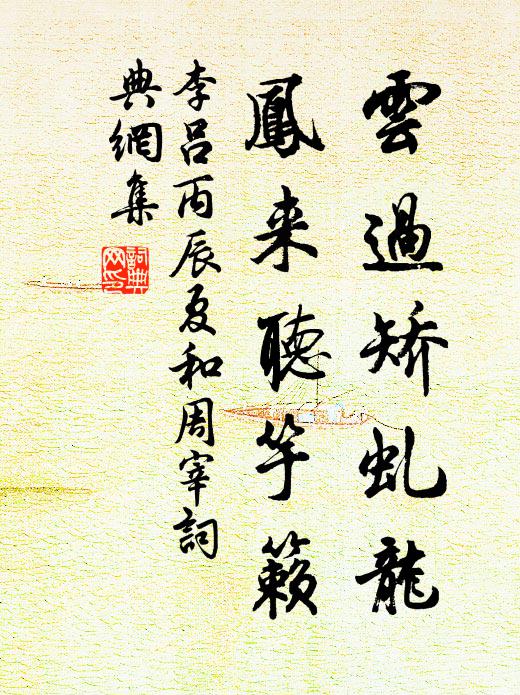 雲過矯虬龍
鳳来聽竽籟
李吕丙辰夏和周宰詞
典網集
詞典网印